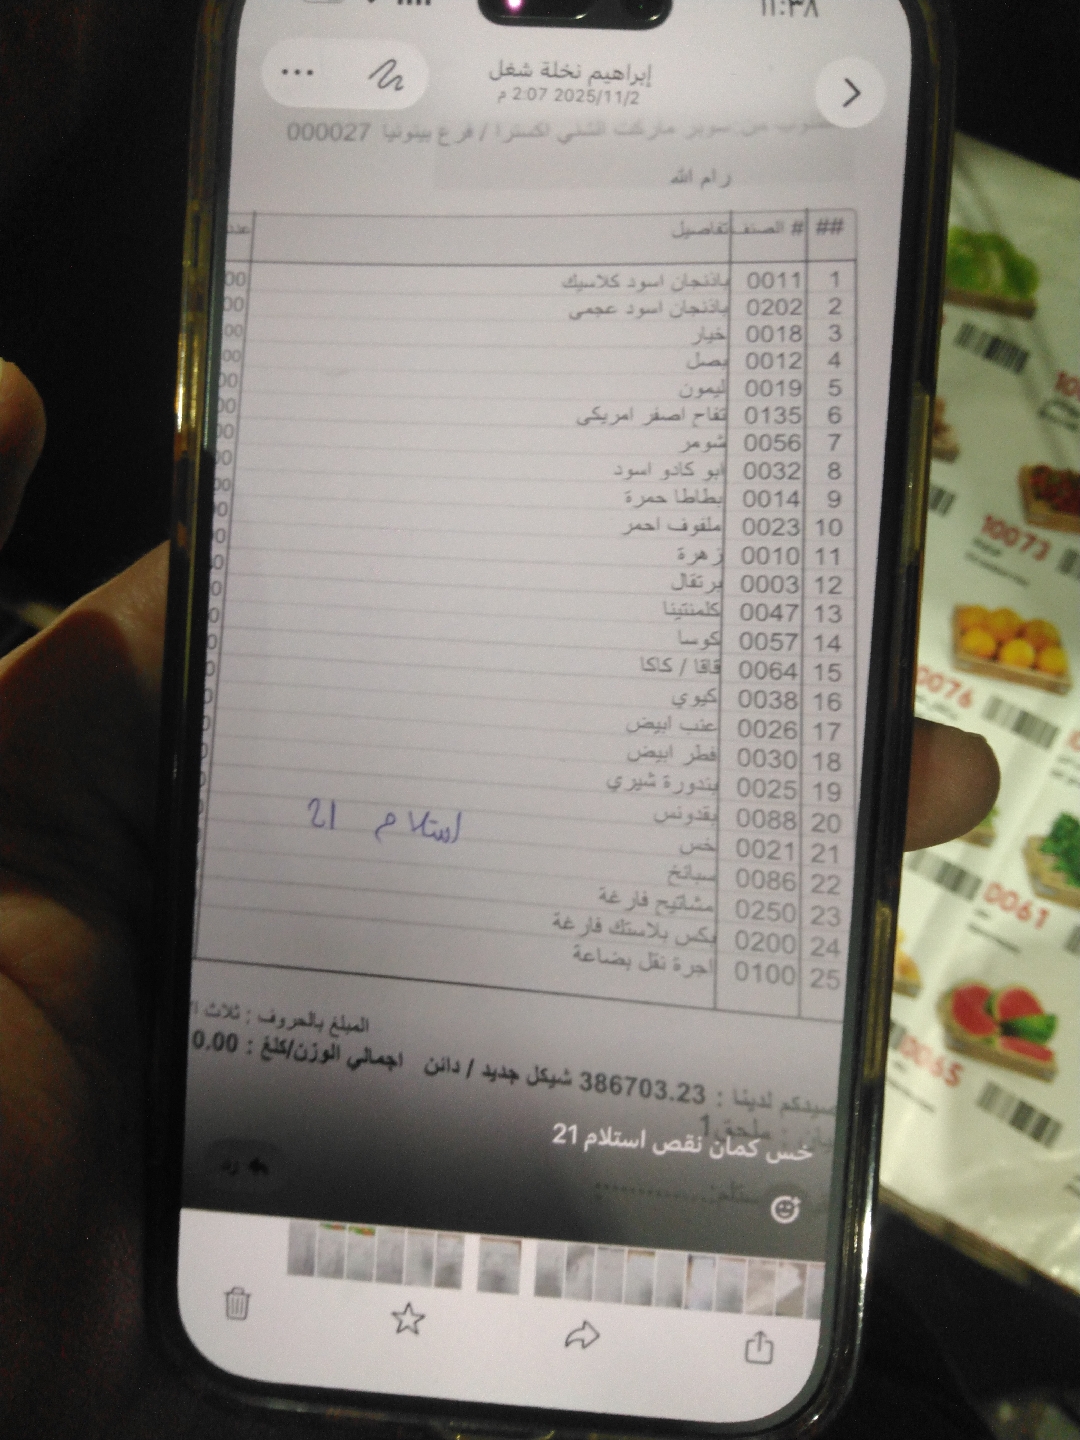 ١١:٣٨
إبراهيم نخلة شغل
2025/11/2 2:07 م
من سوبر ماركت الشني اكسترا / فرع بيتونيا 000027
رام الله
## # الصنف تفاصيل عدد
1 0011 باذنجان اسود كلاسيك 00
2 0202 باذنجان اسود عجمي 00
3 0018 خيار 00
4 0012 بصل 00
5 0019 ليمون 00
6 0135 تفاح اصفر امريكي 00
7 0056 شومر 00
8 0032 ابو كادو اسود 00
9 0014 بطاطا حمرة 00
10 0023 ملفوف احمر 00
11 0010 زهرة 0
12 0003 برتقال 0
13 0047 كلمنتينا 0
14 0057 كوسا 0
15 0064 قاقا / كاكا 0
16 0038 كيوي 0
17 0026 عنب ابيض 0
18 0030 فطر ابيض 0
19 0025 بندورة شيري
20 0088 بقدونس
استلام 21
21 0021 خس
22 0086 سبانخ
23 0250 مشاتيح فارغة
24 0200 بكس بلاستك فارغة
25 0100 اجرة نقل بضاعة
المبلغ بالحروف : ثلاث
رصيدكم لدينا : 386703.23 شيكل جديد / دائن اجمالي الوزن/كلغ : 0.00
ملحق 1
خس كمان نقص استلام 21
رد
10073
0076
0061
0065